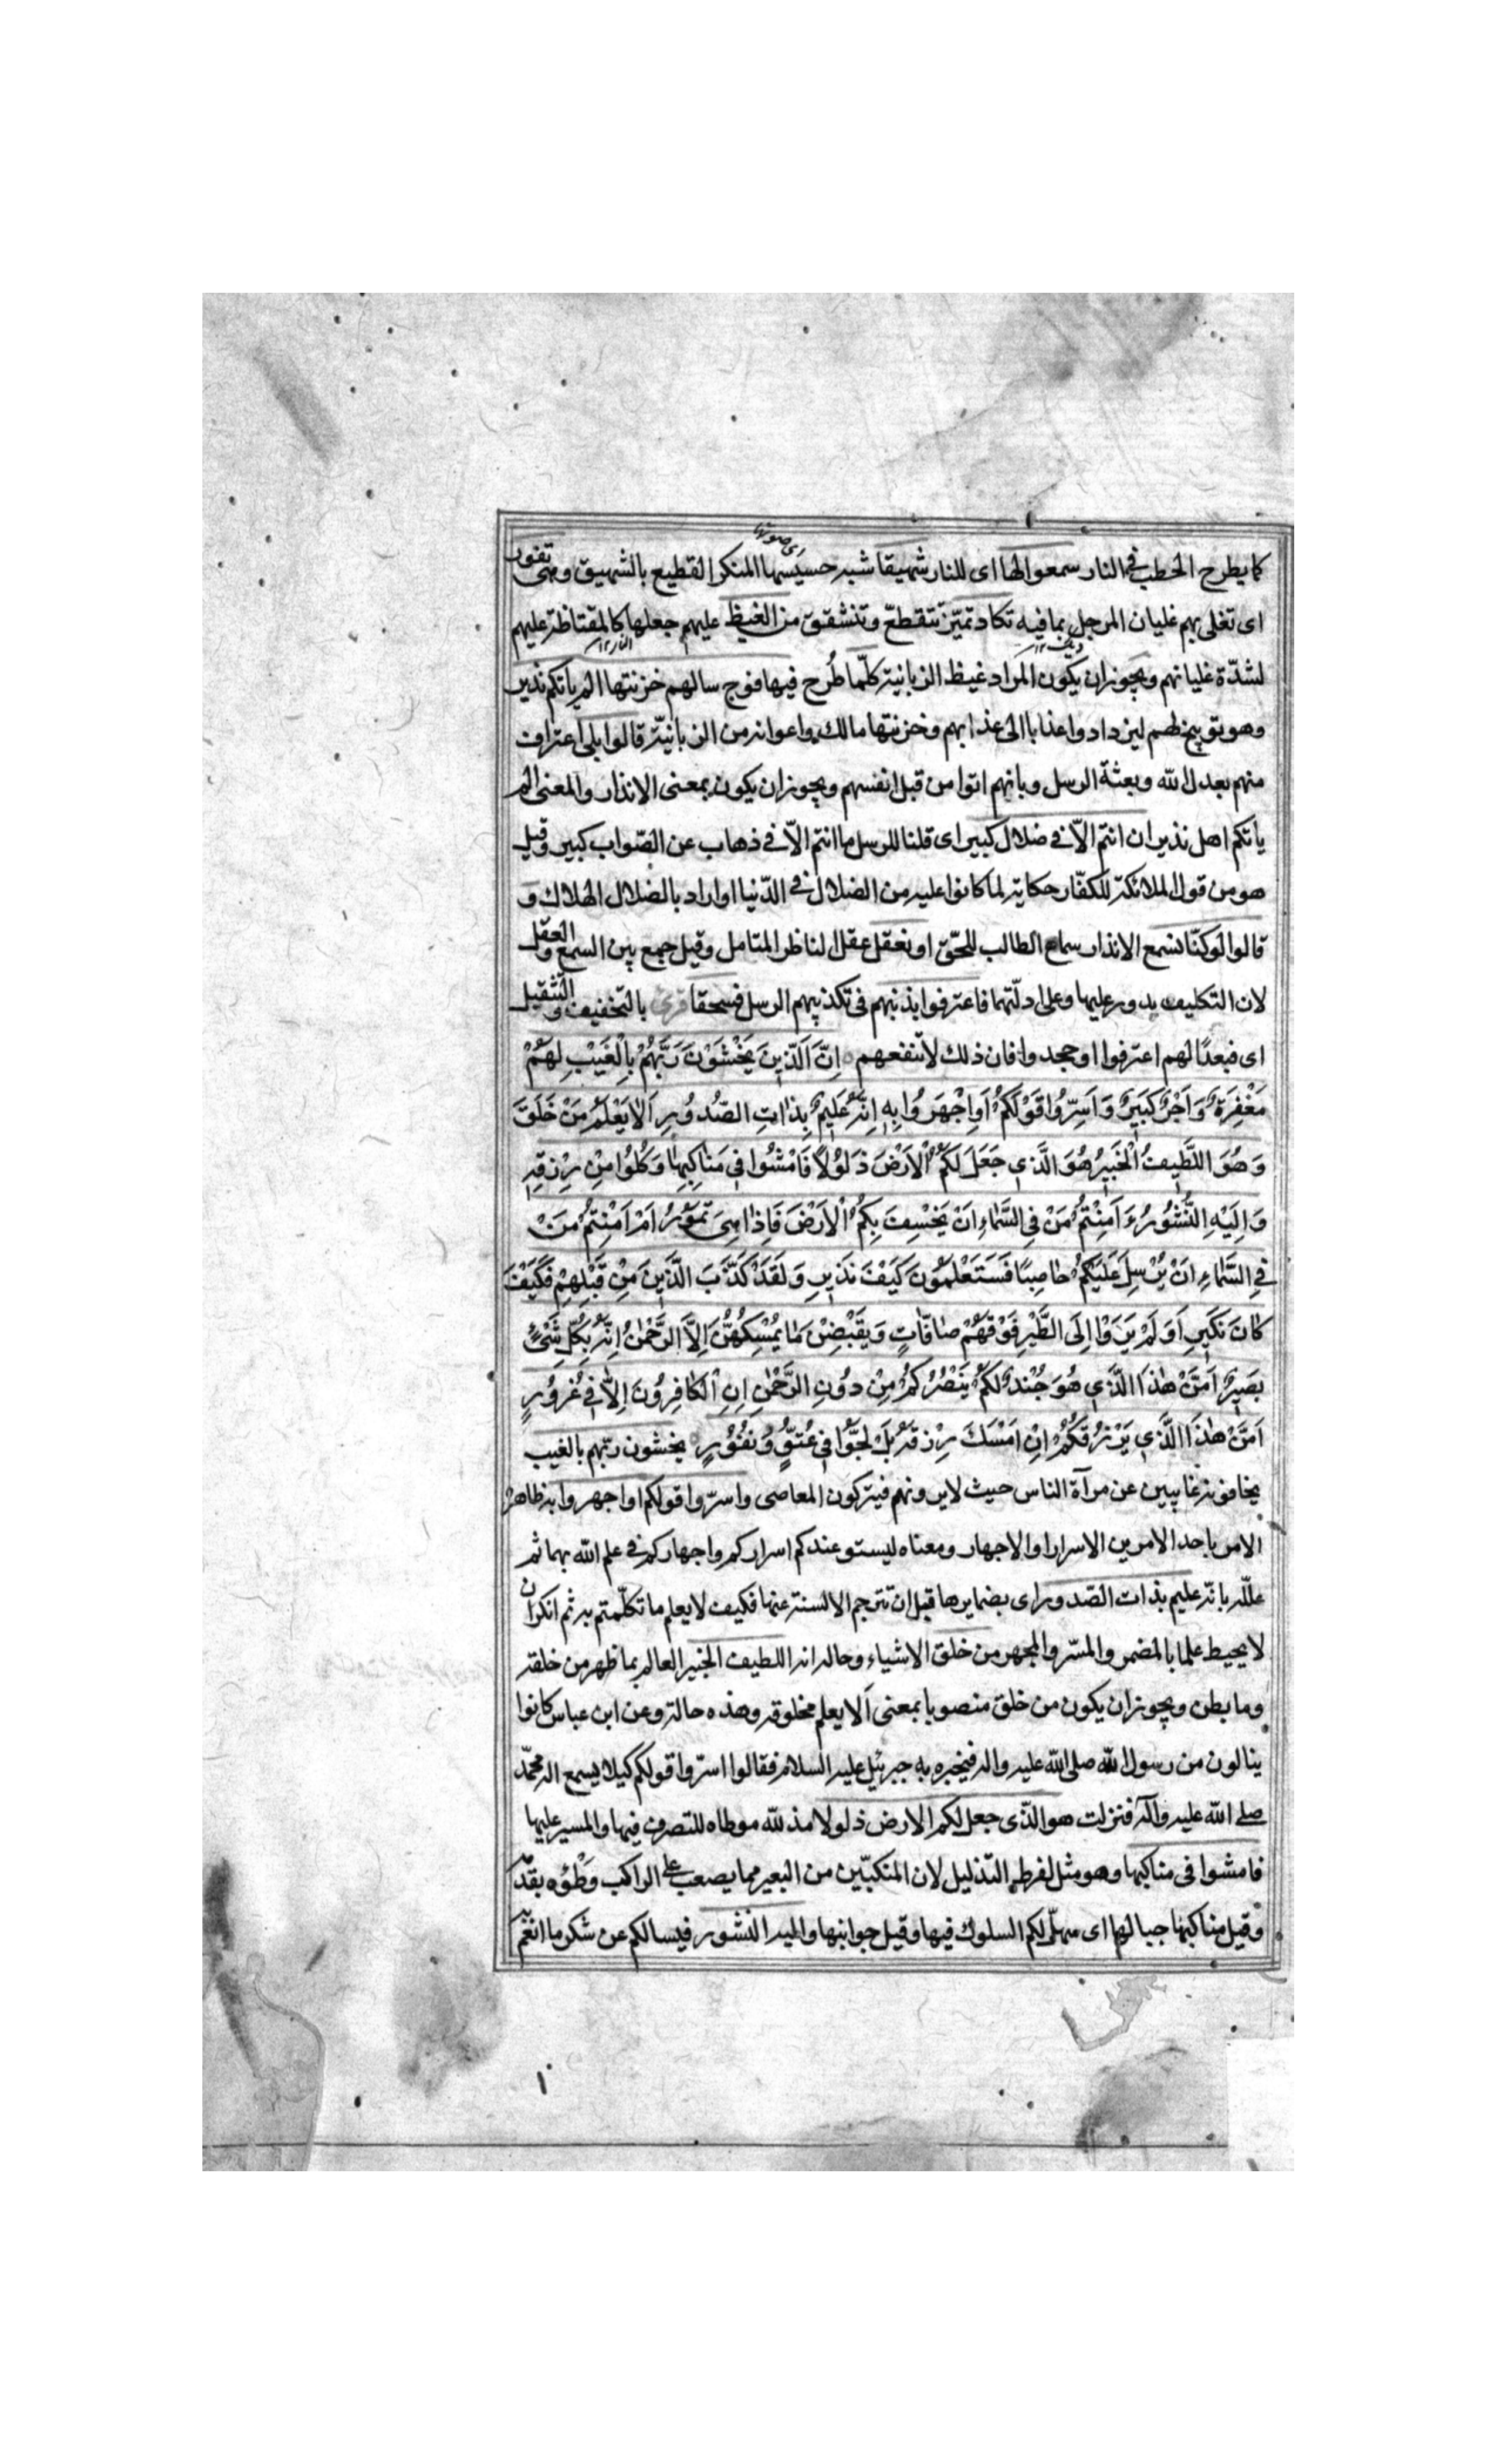 اى صوتها
كما يطرح الحطب فى النار سمعوا لها اى للنار شهيقا شبه حسيسها المنكر القطيع بالشهيق وهى تفور
اى تغلى بهم غليان المرجل بما فيه تكاد تميّز تتقطع وتنشقق من الغيظ عليهم جعلها كالمقتاظة عليهم
ديك ١٢ النار ١٢
لشدّة غليانهم ويجوز ان يكون المراد غيظ الزبانية كلّما طُرح فيها فوج سالهم خزنتها الم ياتكم نذير
وهو توبيخ لهم ليزدادوا عذابا الى عذابهم وخزنتها مالك واعوانه من الزبانيّة قالوا بلى اعتراف
منهم بعدل الله وبعثة الرسل وبانهم اتوا من قبل انفسهم ويجوز ان يكون بمعنى الانذار والمعنى الم
ياتكم اهل نذير ان انتم الاّ فى ضلال كبير اى قلنا للرسل ما انتم الاّ فى ذهاب عن الصّواب كبير وقيل
هو من قول الملائكة للكفّار حكاية لما كانوا عليه من الضلال فى الدّنيا او اراد بالضلال الهلاك و
قالوا لو كنّا نسمع الانذار سماع الطالب للحقّ او نعقل عقل الناظر المتامل وقيل جمع بين السمع والعقل
لان التكليف يدور عليها وعلى ادلّتهما فاعترفوا بذنبهم فى تكذيبهم الرسل فسحقا قرئ بالتخفيف والتّثقيل
اى فبعدًا لهم اعترفوا او جحدوا فان ذلك لا ينفعهم اِنَّ الَّذِينَ يَخْشَوْنَ رَبَّهُمْ بِالْغَيْبِ لَهُمْ
مَغْفِرَةٌ وَاَجْرٌ كَبِيرٌ وَاَسِرُّوا قَوْلَكُمْ اَوِاجْهَرُوا بِهِ اِنَّهُ عَلِيمٌ بِذاتِ الصُّدُورِ اَلا يَعْلَمُ مَنْ خَلَقَ
وَهُوَ اللَّطِيفُ الْخَبِيرُ هُوَ الَّذِي جَعَلَ لَكُمُ الْاَرْضَ ذَلُولًا فَامْشُوا فِي مَناكِبِها وَكُلُوا مِنْ رِزْقِهِ
وَاِلَيْهِ النُّشُورُ ءَاَمِنْتُمْ مَنْ فِي السَّماءِ اَنْ يَخْسِفَ بِكُمُ الْاَرْضَ فَاِذا هِيَ تَمُورُ اَمْ اَمِنْتُمْ مَنْ
فِي السَّماءِ اَنْ يُرْسِلَ عَلَيْكُمْ حاصِبًا فَسَتَعْلَمُونَ كَيْفَ نَذِيرِ وَلَقَدْ كَذَّبَ الَّذِينَ مِنْ قَبْلِهِمْ فَكَيْفَ
كانَ نَكِيرِ اَوَلَمْ يَرَوْا اِلَى الطَّيْرِ فَوْقَهُمْ صافّاتٍ وَيَقْبِضْنَ ما يُمْسِكُهُنَّ اِلَّا الرَّحْمٰنُ اِنَّهُ بِكُلِّ شَيْءٍ
بَصِيرٌ اَمَّنْ هٰذَا الَّذِي هُوَ جُنْدٌ لَكُمْ يَنْصُرُكُمْ مِنْ دُونِ الرَّحْمٰنِ اِنِ الْكافِرُونَ اِلَّا فِي غُرُورٍ
اَمَّنْ هٰذَا الَّذِي يَرْزُقُكُمْ اِنْ اَمْسَكَ رِزْقَهُ بَلْ لَجُّوا فِي عُتُوٍّ وَنُفُورٍ يخشون ربّهم بالغيب
يخافونه غايبين عن مرآة الناس حيث لا يرونهم فيتركون المعاصى واسرّوا قولكم او اجهروا به ظاهره
الامر باحد الامرين الاسرار او الاجهار ومعناه ليستو عندكم اسراركم واجهاركم فى علم الله بهما ثم
علّله بانّه عليم بذات الصّدور اى بضمايرها قبل ان تترجم الالسنة عنها فكيف لا يعلم ما تكلّمتم به ثم انكر ان
لا يحيط علما بالمضمر والمسرّ والمجهر من خلق الاشياء وحاله انه اللطيف الخبير العالم بما ظهر من خلقه
وما بطن ويجوز ان يكون من خلق منصوبا بمعنى ألا يعلم مخلوقه وهذه حالة وعن ابن عباس كانوا
ينالون من رسول الله صلى الله عليه واله فيخبره به جبرئيل عليه السلام فقالوا اسرّوا قولكم كيلا يسمع اله محمّد
صلى الله عليه وآله فنزلت هو الّذى جعل لكم الارض ذلولا مذللة موطاه للتصرف فيها والمسير عليها
فامشوا فى مناكبها وهو مثل لفرط التذليل لان المنكبّين من البعير مما يصعب على الراكب وطْؤه بقدمه
وقيل مناكبها جبالها اى سهّل لكم السلوك فيها وقيل جوانبها واليه النشور فيسالكم عن شكر ما انعم به